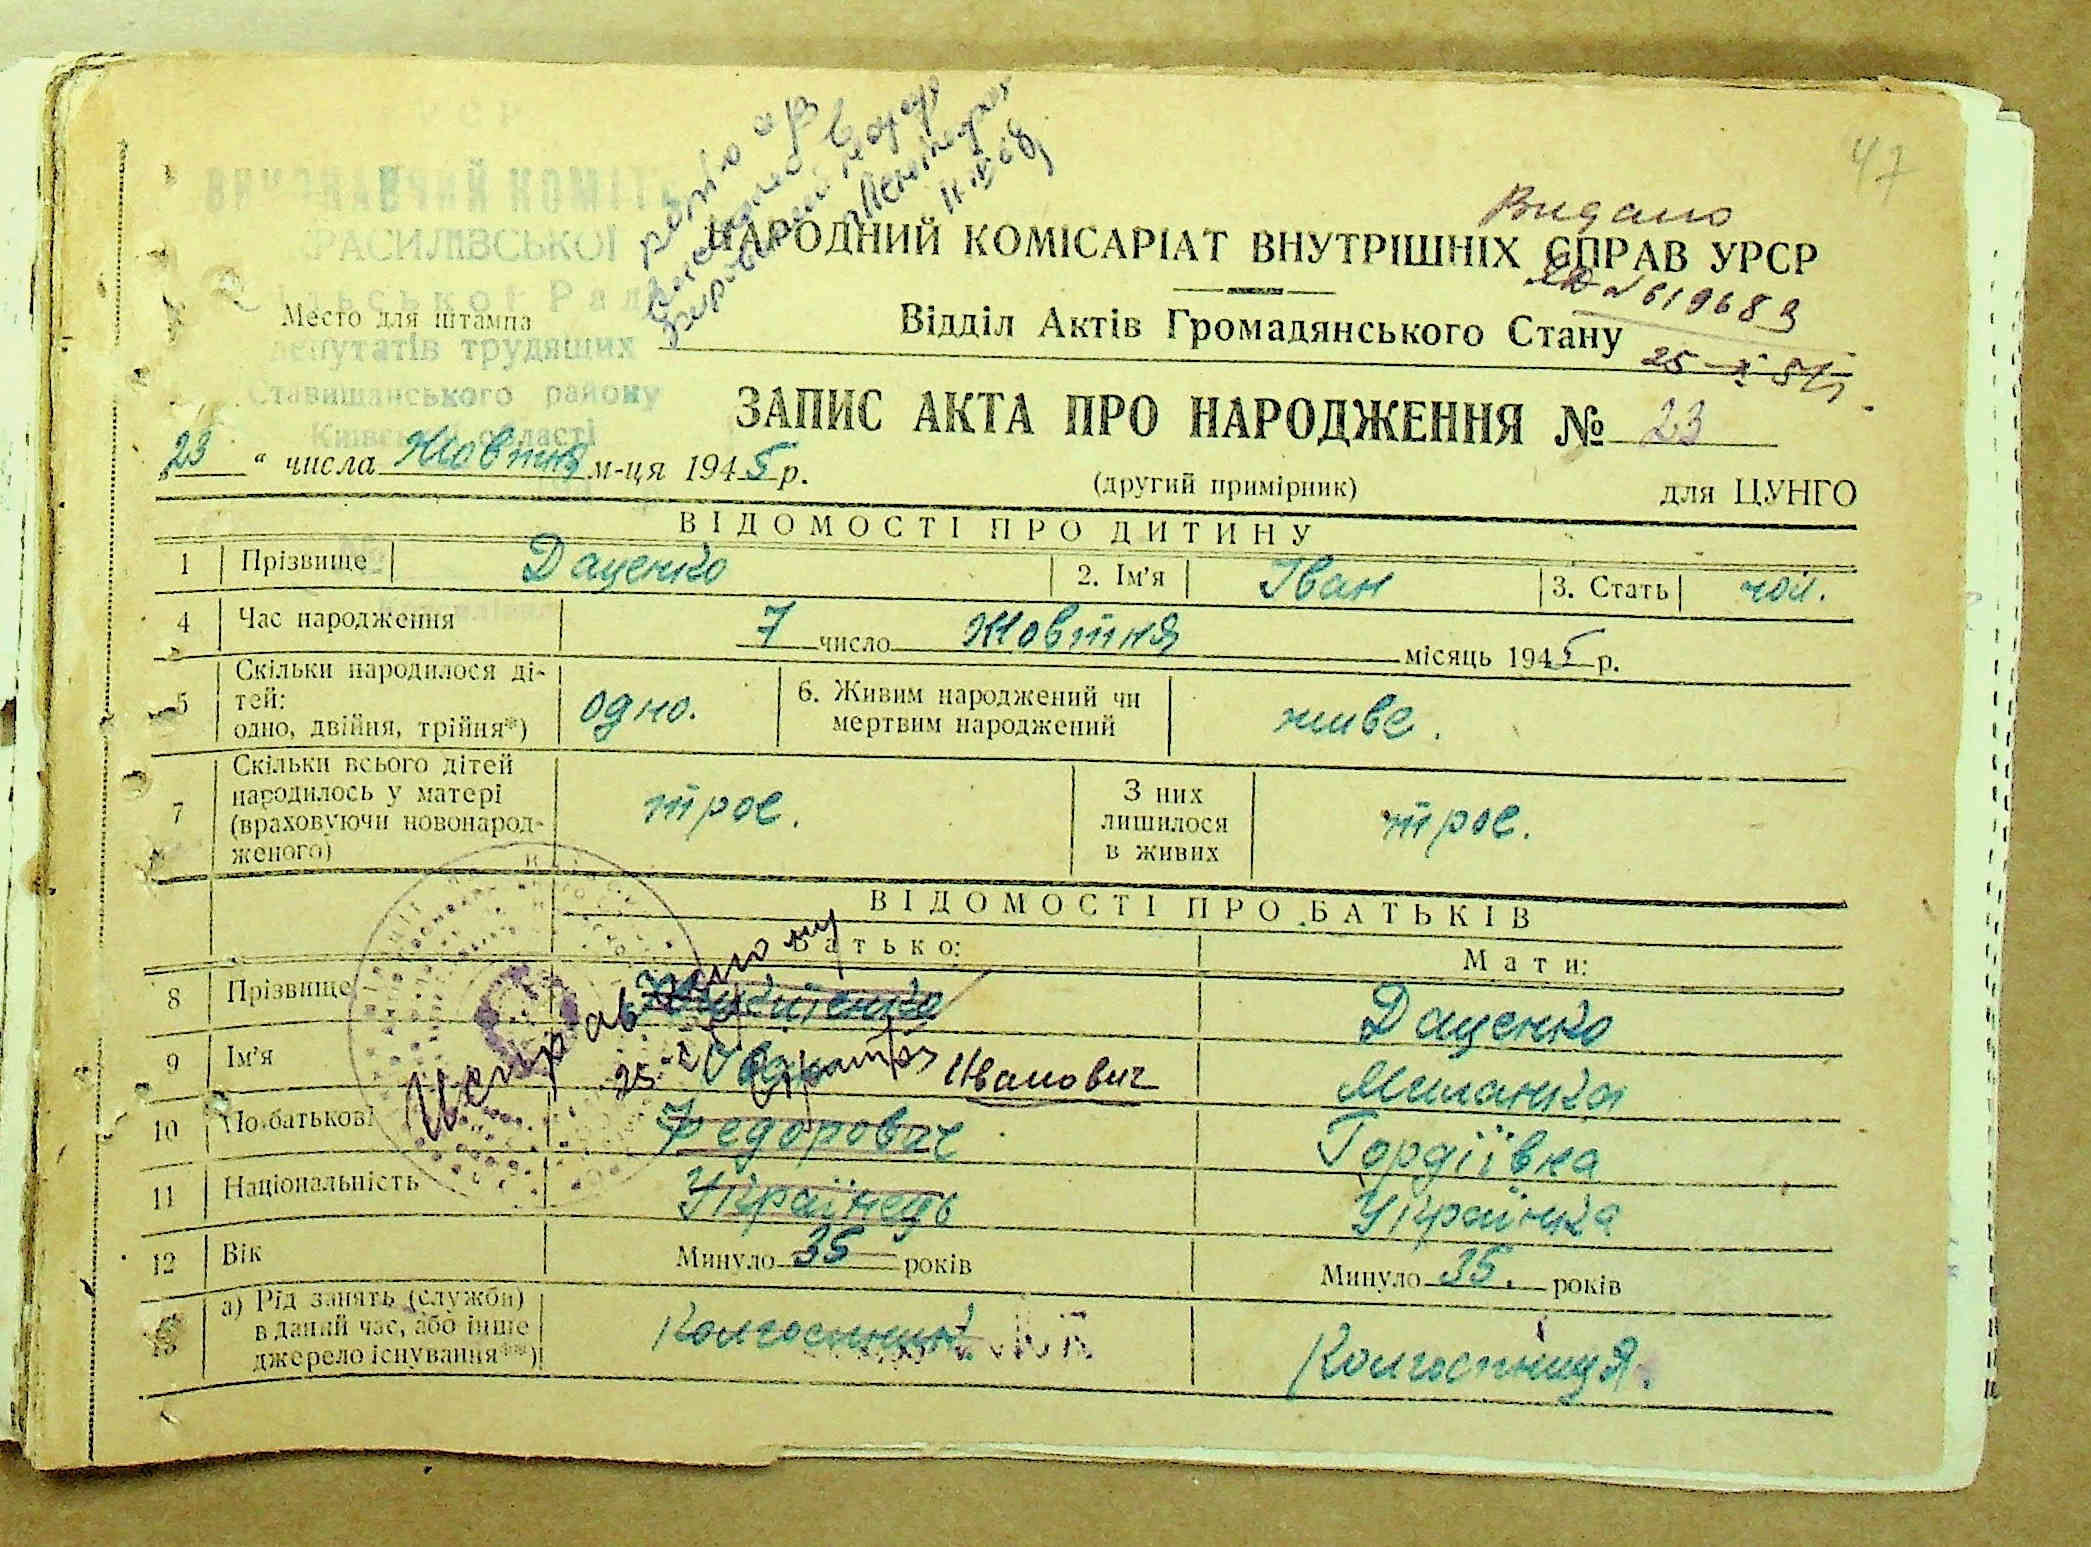 47
ВИКОНАВЧИЙ КОМІТЕТ
Видано
НАРОДНИЙ КОМІСАРІАТ ВНУТРІШНІХ СПРАВ УРСР
Место для штампа
№ 619689
депутатів трудящих
Відділ Актів Громадянського Стану
25
Ставищанського району
Київської області
ЗАПИС АКТА ПРО НАРОДЖЕННЯ № 23
„23“ числа Жовтня м-ця 1945 р.
(другий примірник) для ЦУНГО
ВІДОМОСТІ ПРО ДИТИНУ
1 Прізвище Даценко 2. Ім'я Іван 3. Стать чол.
4 Час народження 7 число Жовтня місяць 1945 р.
5 Скільки народилося ді-
тей:
одно, двійня, трійня*) одно. 6. Живим народжений чи
мертвим народжений живе.
7 Скільки всього дітей
народилось у матері
(враховуючи новонарод-
женого) троє. З них
лишилося
в живих троє.
ВІДОМОСТІ ПРО БАТЬКІВ
Батько: Мати:
8 Прізвище Даценко
9 Ім'я Іван Иванович Миланка
10 По-батькові Федорович Гордіївна
11 Національність Українець Українка
12 Вік Минуло 35 років Минуло 35. років
13 а) Рід занять (служби)
в даний час, або інше
джерело існування**) Колгоспник Колгоспниця.